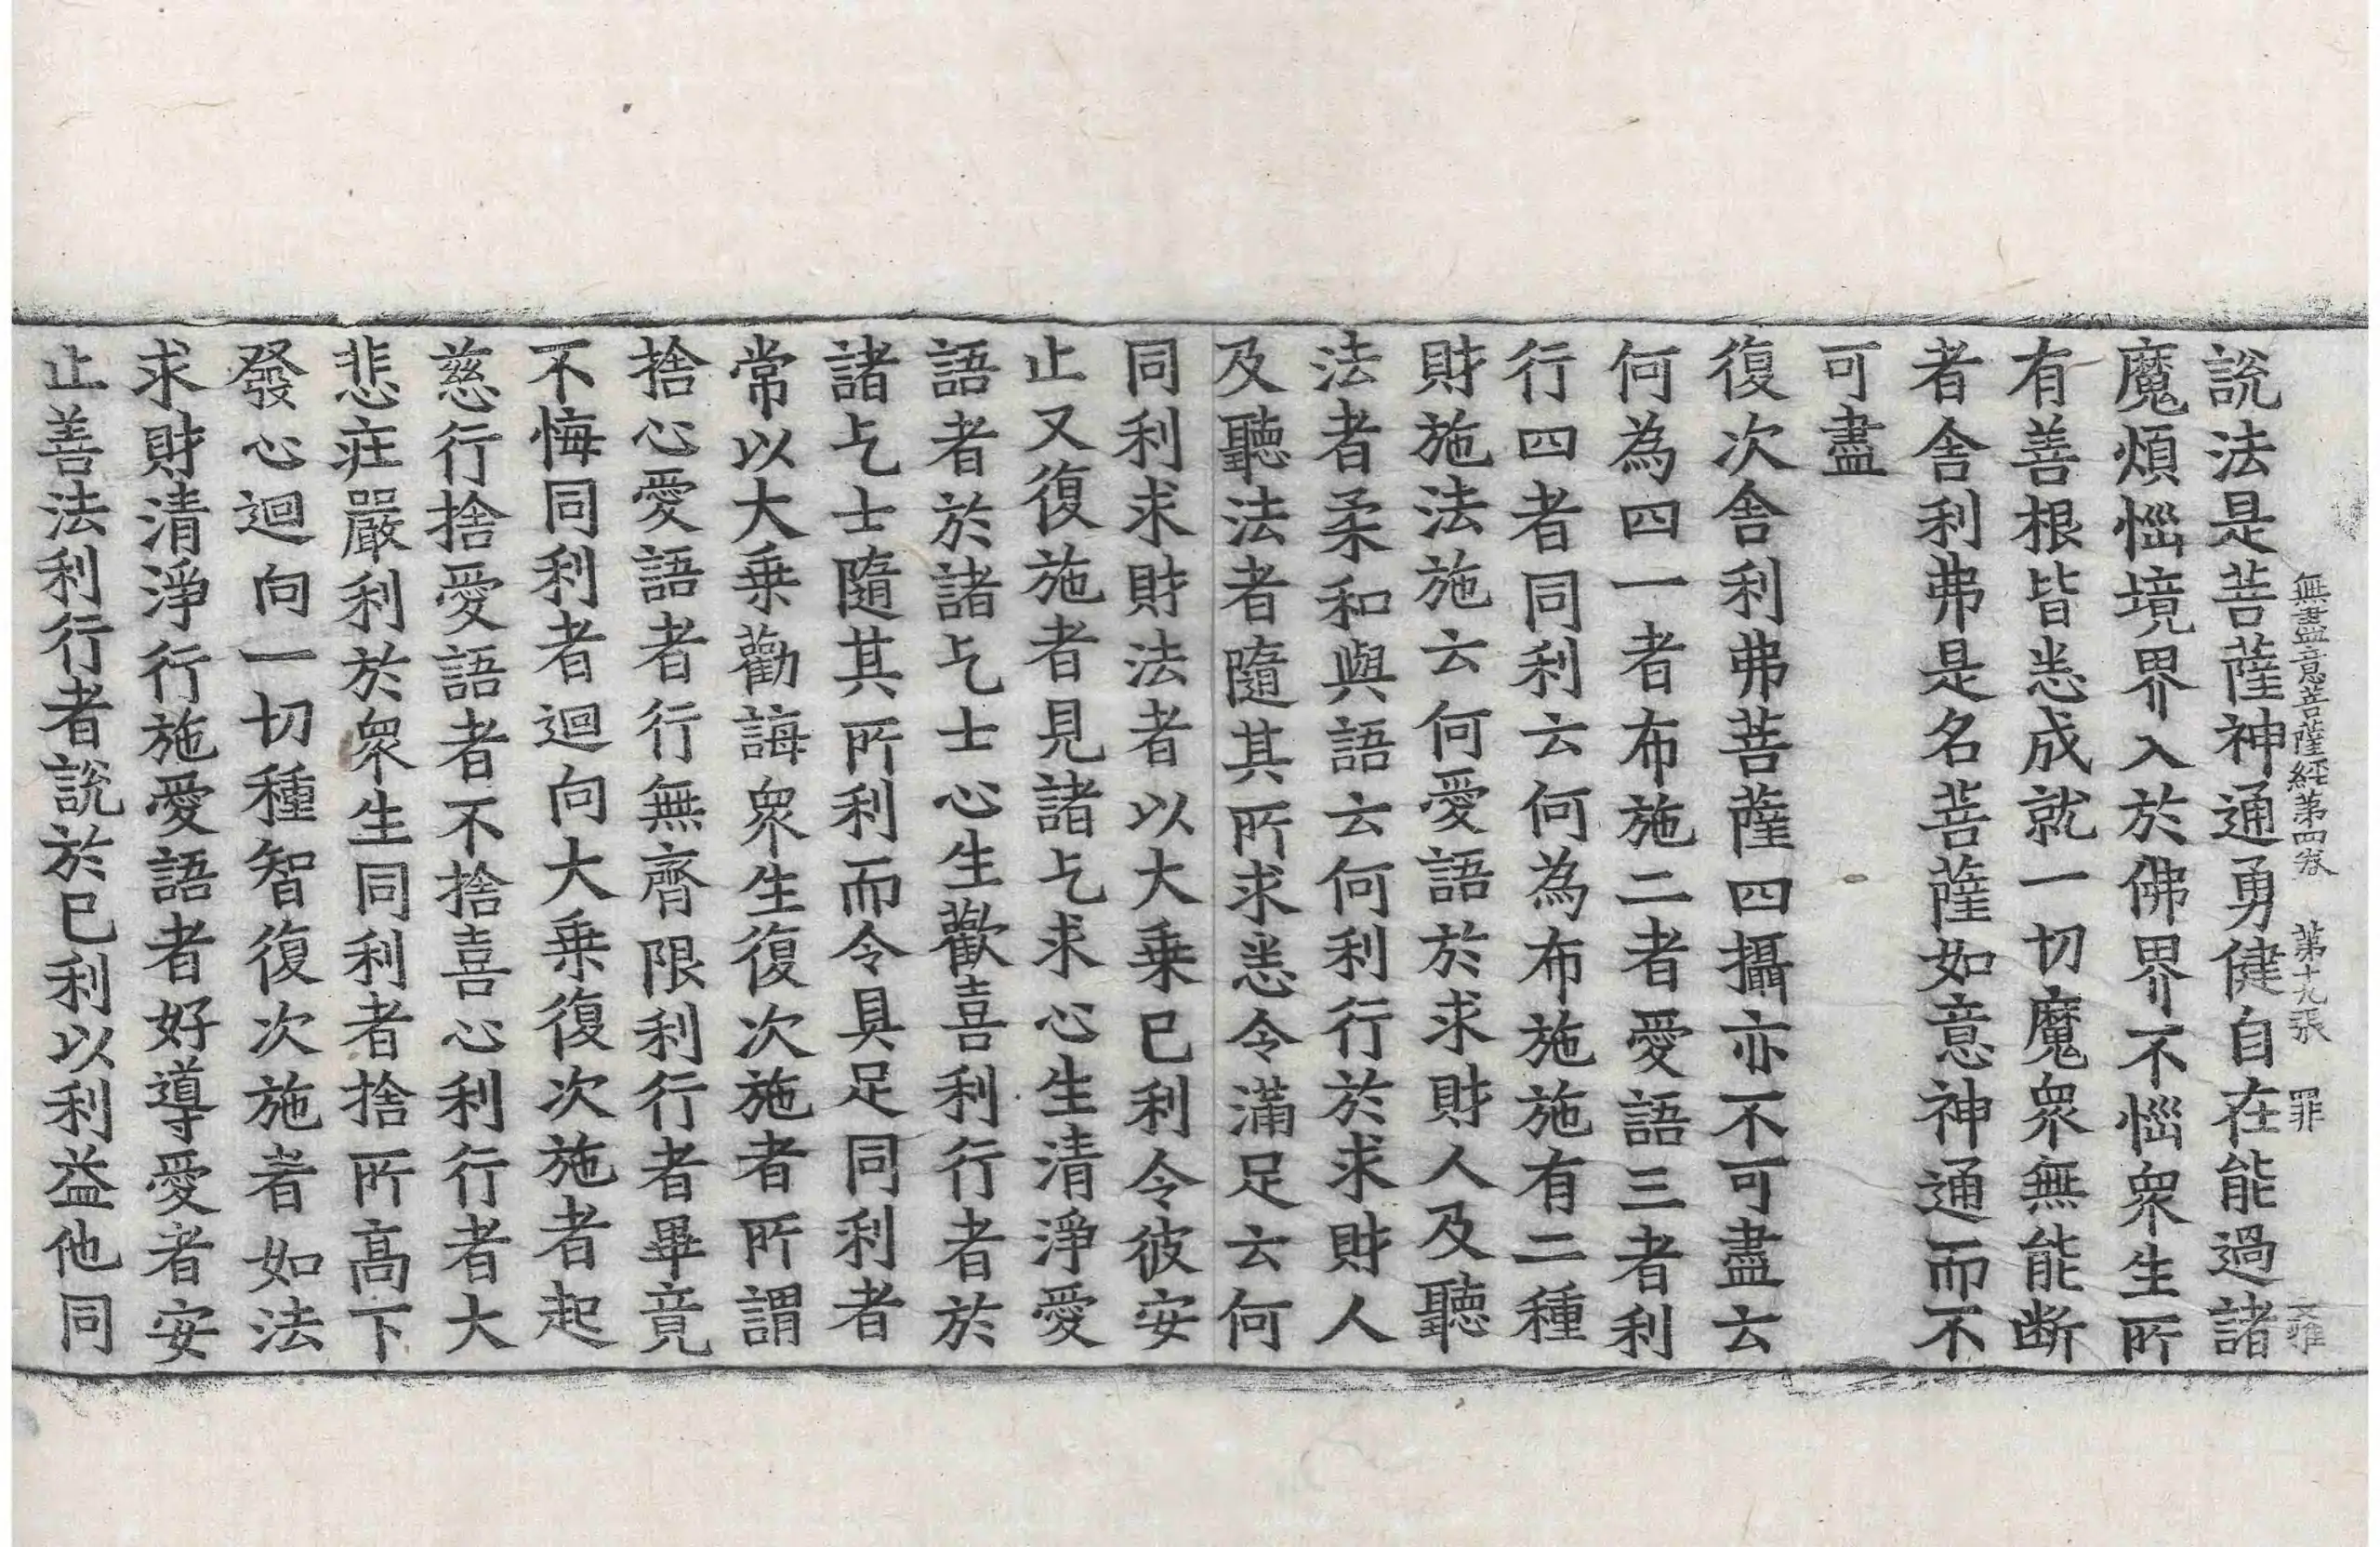 無盡意菩薩經第四卷 第十九張 罪
說法是菩薩神通勇健自在能過諸
魔煩惱境界入於佛界不惱衆生所
有善根皆悉成就一切魔衆無能断
者舍利弗是名菩薩如意神通而不
可盡
復次舍利弗菩薩四攝亦不可盡云
何為四一者布施二者愛語三者利
行四者同利云何為布施施有二種
財施法施云何愛語於求財人及聽
法者柔和與語云何利行於求財人
及聽法者隨其所求悉令滿足云何
同利求財法者以大乗已利令彼安
止又復施者見諸乞求心生清淨愛
語者於諸乞士心生歡喜利行者於
諸乞士隨其所利而令具足同利者
常以大乗勸誨衆生復次施者所謂
捨心愛語者行無齊限利行者畢竟
不悔同利者迴向大乗復次施者起
慈行捨愛語者不捨喜心利行者大
悲莊嚴利於衆生同利者捨所高下
發心迴向一切種智復次施者如法
求財清淨行施愛語者好導愛者安
止善法利行者說於已利以利益他同